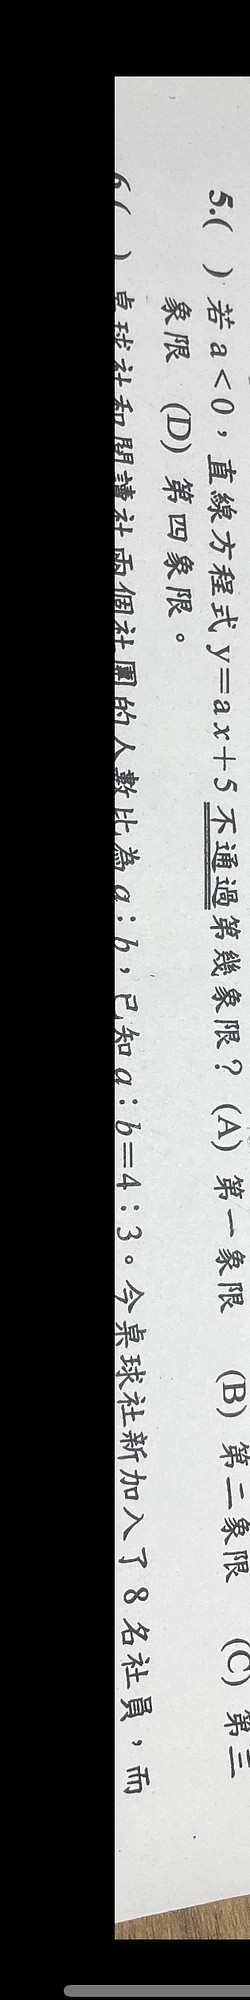 5.( ) 若 a<0，直線方程式 y=ax+5 不通過第幾象限？ (A) 第一象限 (B) 第二象限 (C) 第三
象限 (D) 第四象限。
6.( ) 桌球社和閱讀社兩個社團的人數比為 a：b，已知 a：b=4：3。今桌球社新加入了 8 名社員，而